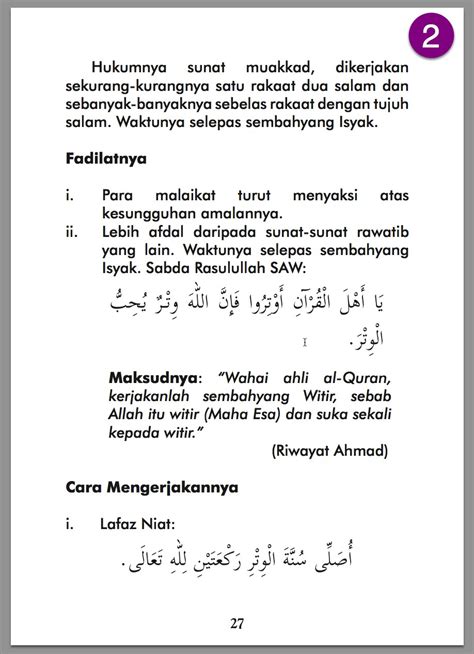 2
Hukumnya sunat muakkad, dikerjakan
sekurang-kurangnya satu rakaat dua salam dan
sebanyak-banyaknya sebelas rakaat dengan tujuh
salam. Waktunya selepas sembahyang Isyak.
Fadilatnya
i. Para malaikat turut menyaksi atas
kesungguhan amalannya.
ii. Lebih afdal daripada sunat-sunat rawatib
yang lain. Waktunya selepas sembahyang
Isyak. Sabda Rasulullah SAW:
يَا أَهْلَ الْقُرْآنِ أَوْتِرُوا فَإِنَّ اللهَ وِتْرٌ يُحِبُّ
الْوِتْرَ.
Maksudnya: “Wahai ahli al-Quran,
kerjakanlah sembahyang Witir, sebab
Allah itu witir (Maha Esa) dan suka sekali
kepada witir.”
(Riwayat Ahmad)
Cara Mengerjakannya
i. Lafaz Niat:
أُصَلِّى سُنَّةَ الْوِتْرِ رَكْعَتَيْنِ لِلهِ تَعَالَى.
27